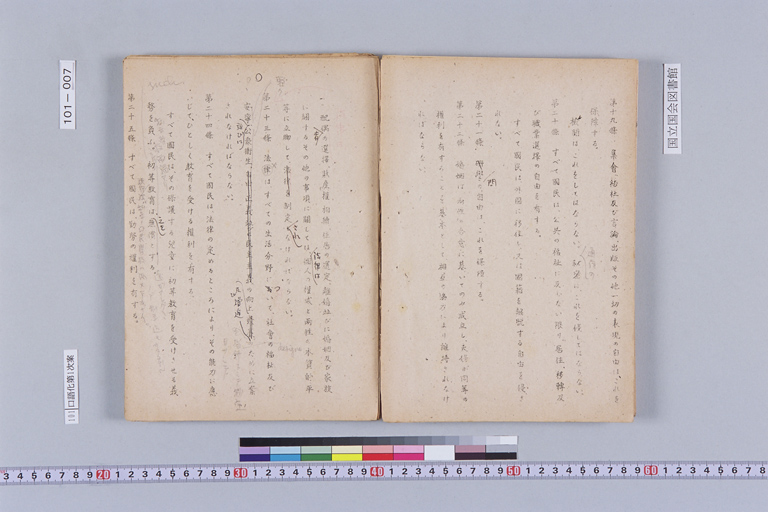 第十九條 集會、結社及び言論、出版その他一切の表現の自由は、これを
保障する。
檢閲は、これをしてはならない。 通信の 秘密は、これを侵してはならない。
第二十條 すべて國民は、公共の福祉に反しない限り、居住、移轉及
び職業選擇の自由を有する。
すべて國民は、外國に移住し、又は國籍を離脱する自由を侵さ
れない。
第二十一條 學問の自由は、これを保障する。
第二十二條 婚姻は、兩性の合意に基いてのみ成立し、夫婦が同等の
權利を有することを基本として相互の協力により、維持されなけ
ればならない。
配偶の選擇、財産權、相續、住居の選定、離婚並びに婚姻及び家族
に關するその他の事項に關しては、法律は、個人の權威と兩性の本質的平
等に立脚して、制定されなければならない。
第二十三條 法律は、すべての生活分野について、社會の福祉及び
安寧 並びに 公衆衛生 増進
されなければならない。
第二十四條 すべて國民は、法律の定めるところにより、その能力に應
じて、ひとしく教育を受ける權利を有する。
すべて國民は、その保護する兒童に初等教育を受けさせる義
務を負ふ。初等教育は、無償とする。
第二十五條 すべて國民は、勤勞の權利を有する。
101-007
口語化第1次案
国立国会図書館
3 4 5 6 7 8 9 20 1 2 3 4 5 6 7 8 9 30 1 2 3 4 5 6 7 8 9 40 1 2 3 4 5 6 7 8 9 50 1 2 3 4 5 6 7 8 9 60 1 2 3 4 5 6 7 8